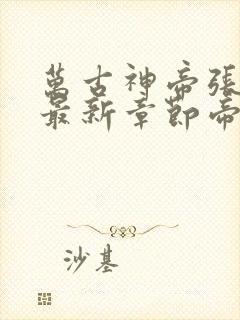 萬古神帝張
最新章節帝
沙基